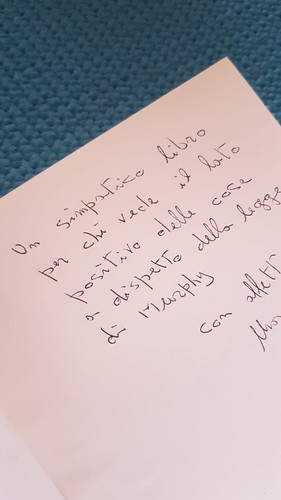 Un simpatico libro
per chi vede il lato
positivo delle cose
a dispetto della legge
di Murphy
con affett